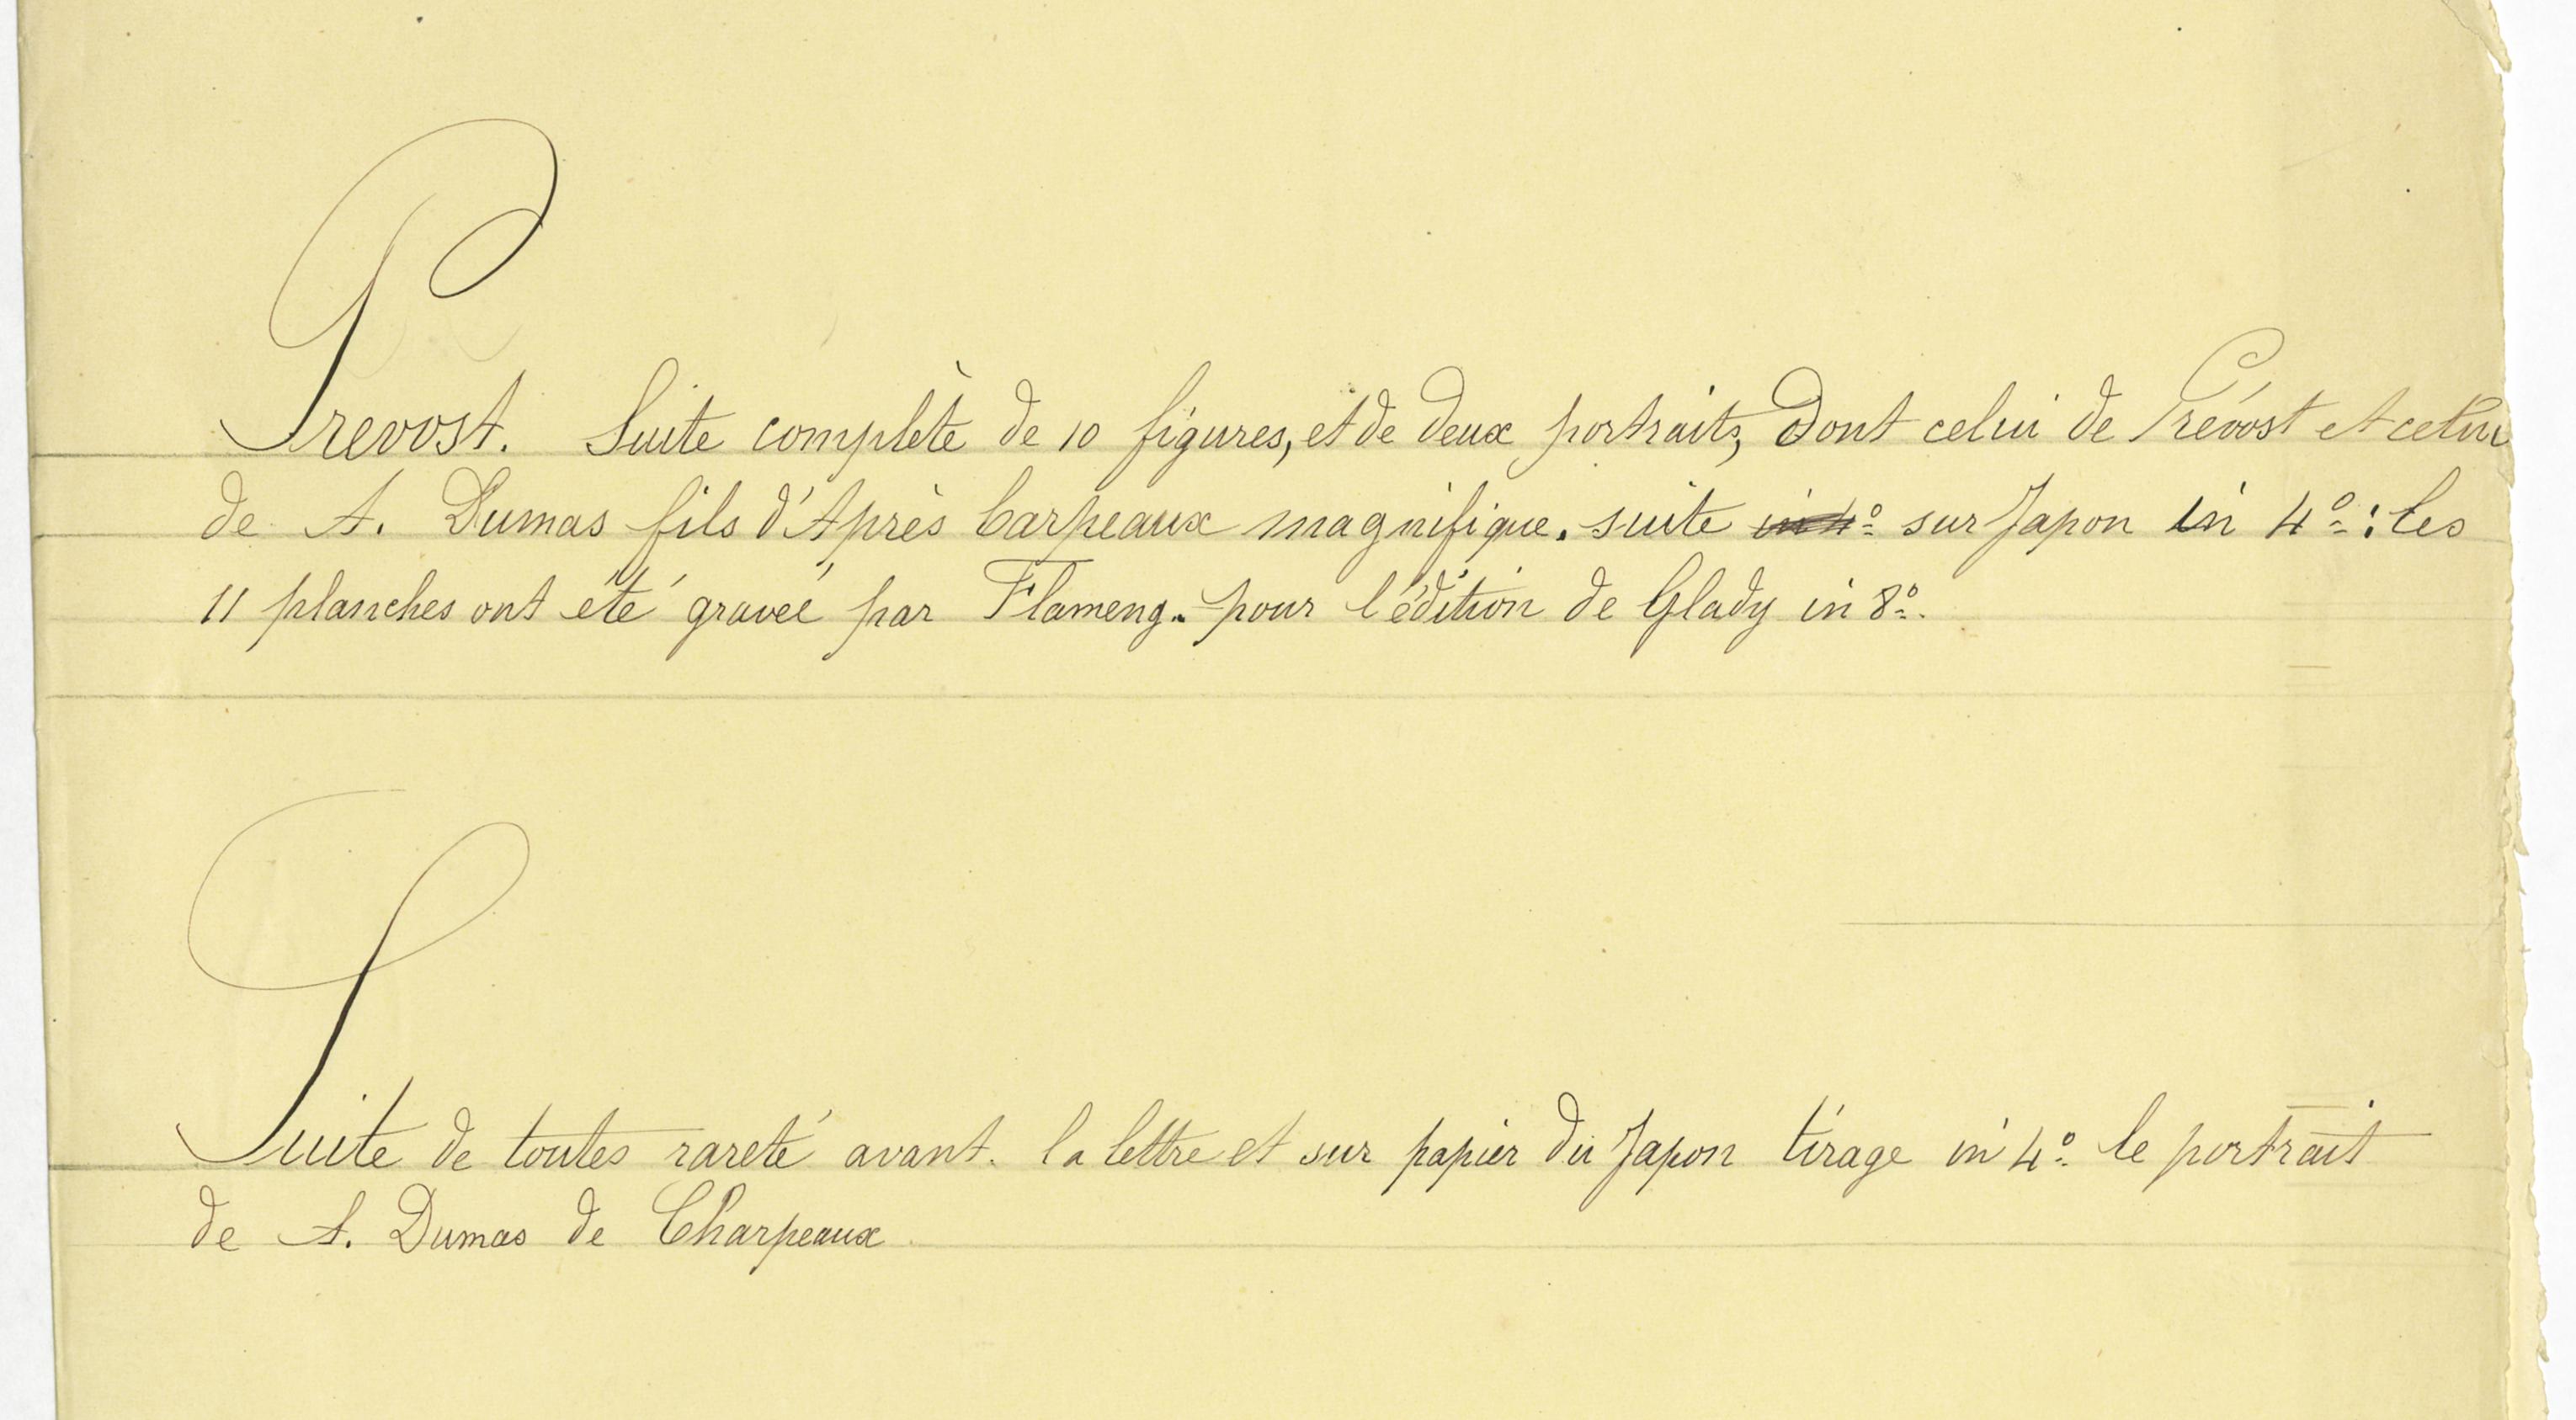 Prevost. Suite complète de 10 figures, et de deux portraits, dont celui de Prévost et celui
de A. Dumas fils d'Après Carpeaux magnifique. suite in 4º sur Japon in 4º : les
11 planches ont été gravée par Flameng. pour l'édition de Glady in 8º.
Suite de toutes rareté avant. la lettre et sur papier du Japon tirage in 4º le portrait
de A. Dumas de Charpeaux